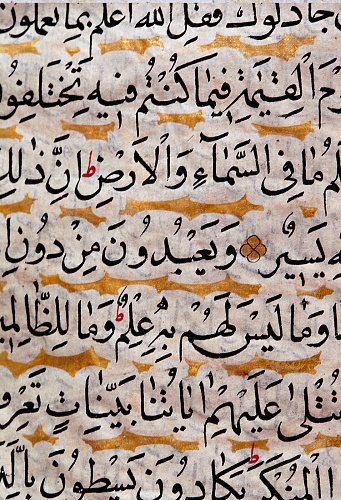 جادلوك فقل الله اعلم بما تعملون
الْقِيٰمَةِ فِيمَا كُنْتُمْ فِيهِ تَخْتَلِفُو
مَا فِى السَّمَآءِ وَالْاَرْضِ ط اِنَّ ذٰلِكَ
يَسِيرٌ وَيَعْبُدُونَ مِنْ دُونِ
وَمَا لَيْسَ لَهُمْ بِهِ عِلْمٌ ط وَمَا لِلظَّالِمِ
تُتْلٰى عَلَيْهِمْ اٰيَاتُنَا بَيِّنَاتٍ تَعْرِ
الْمُنْكَرَ ط يَكَادُونَ يَسْطُونَ بِالَّذِ